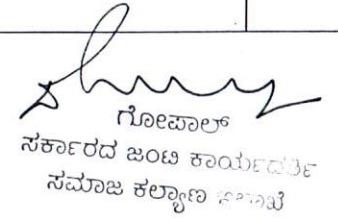 ಗೋಪಾಲ್
ಸರ್ಕಾರದ ಜಂಟಿ ಕಾರ್ಯದರ್ಶಿ
ಸಮಾಜ ಕಲ್ಯಾಣ ಇಲಾಖೆ